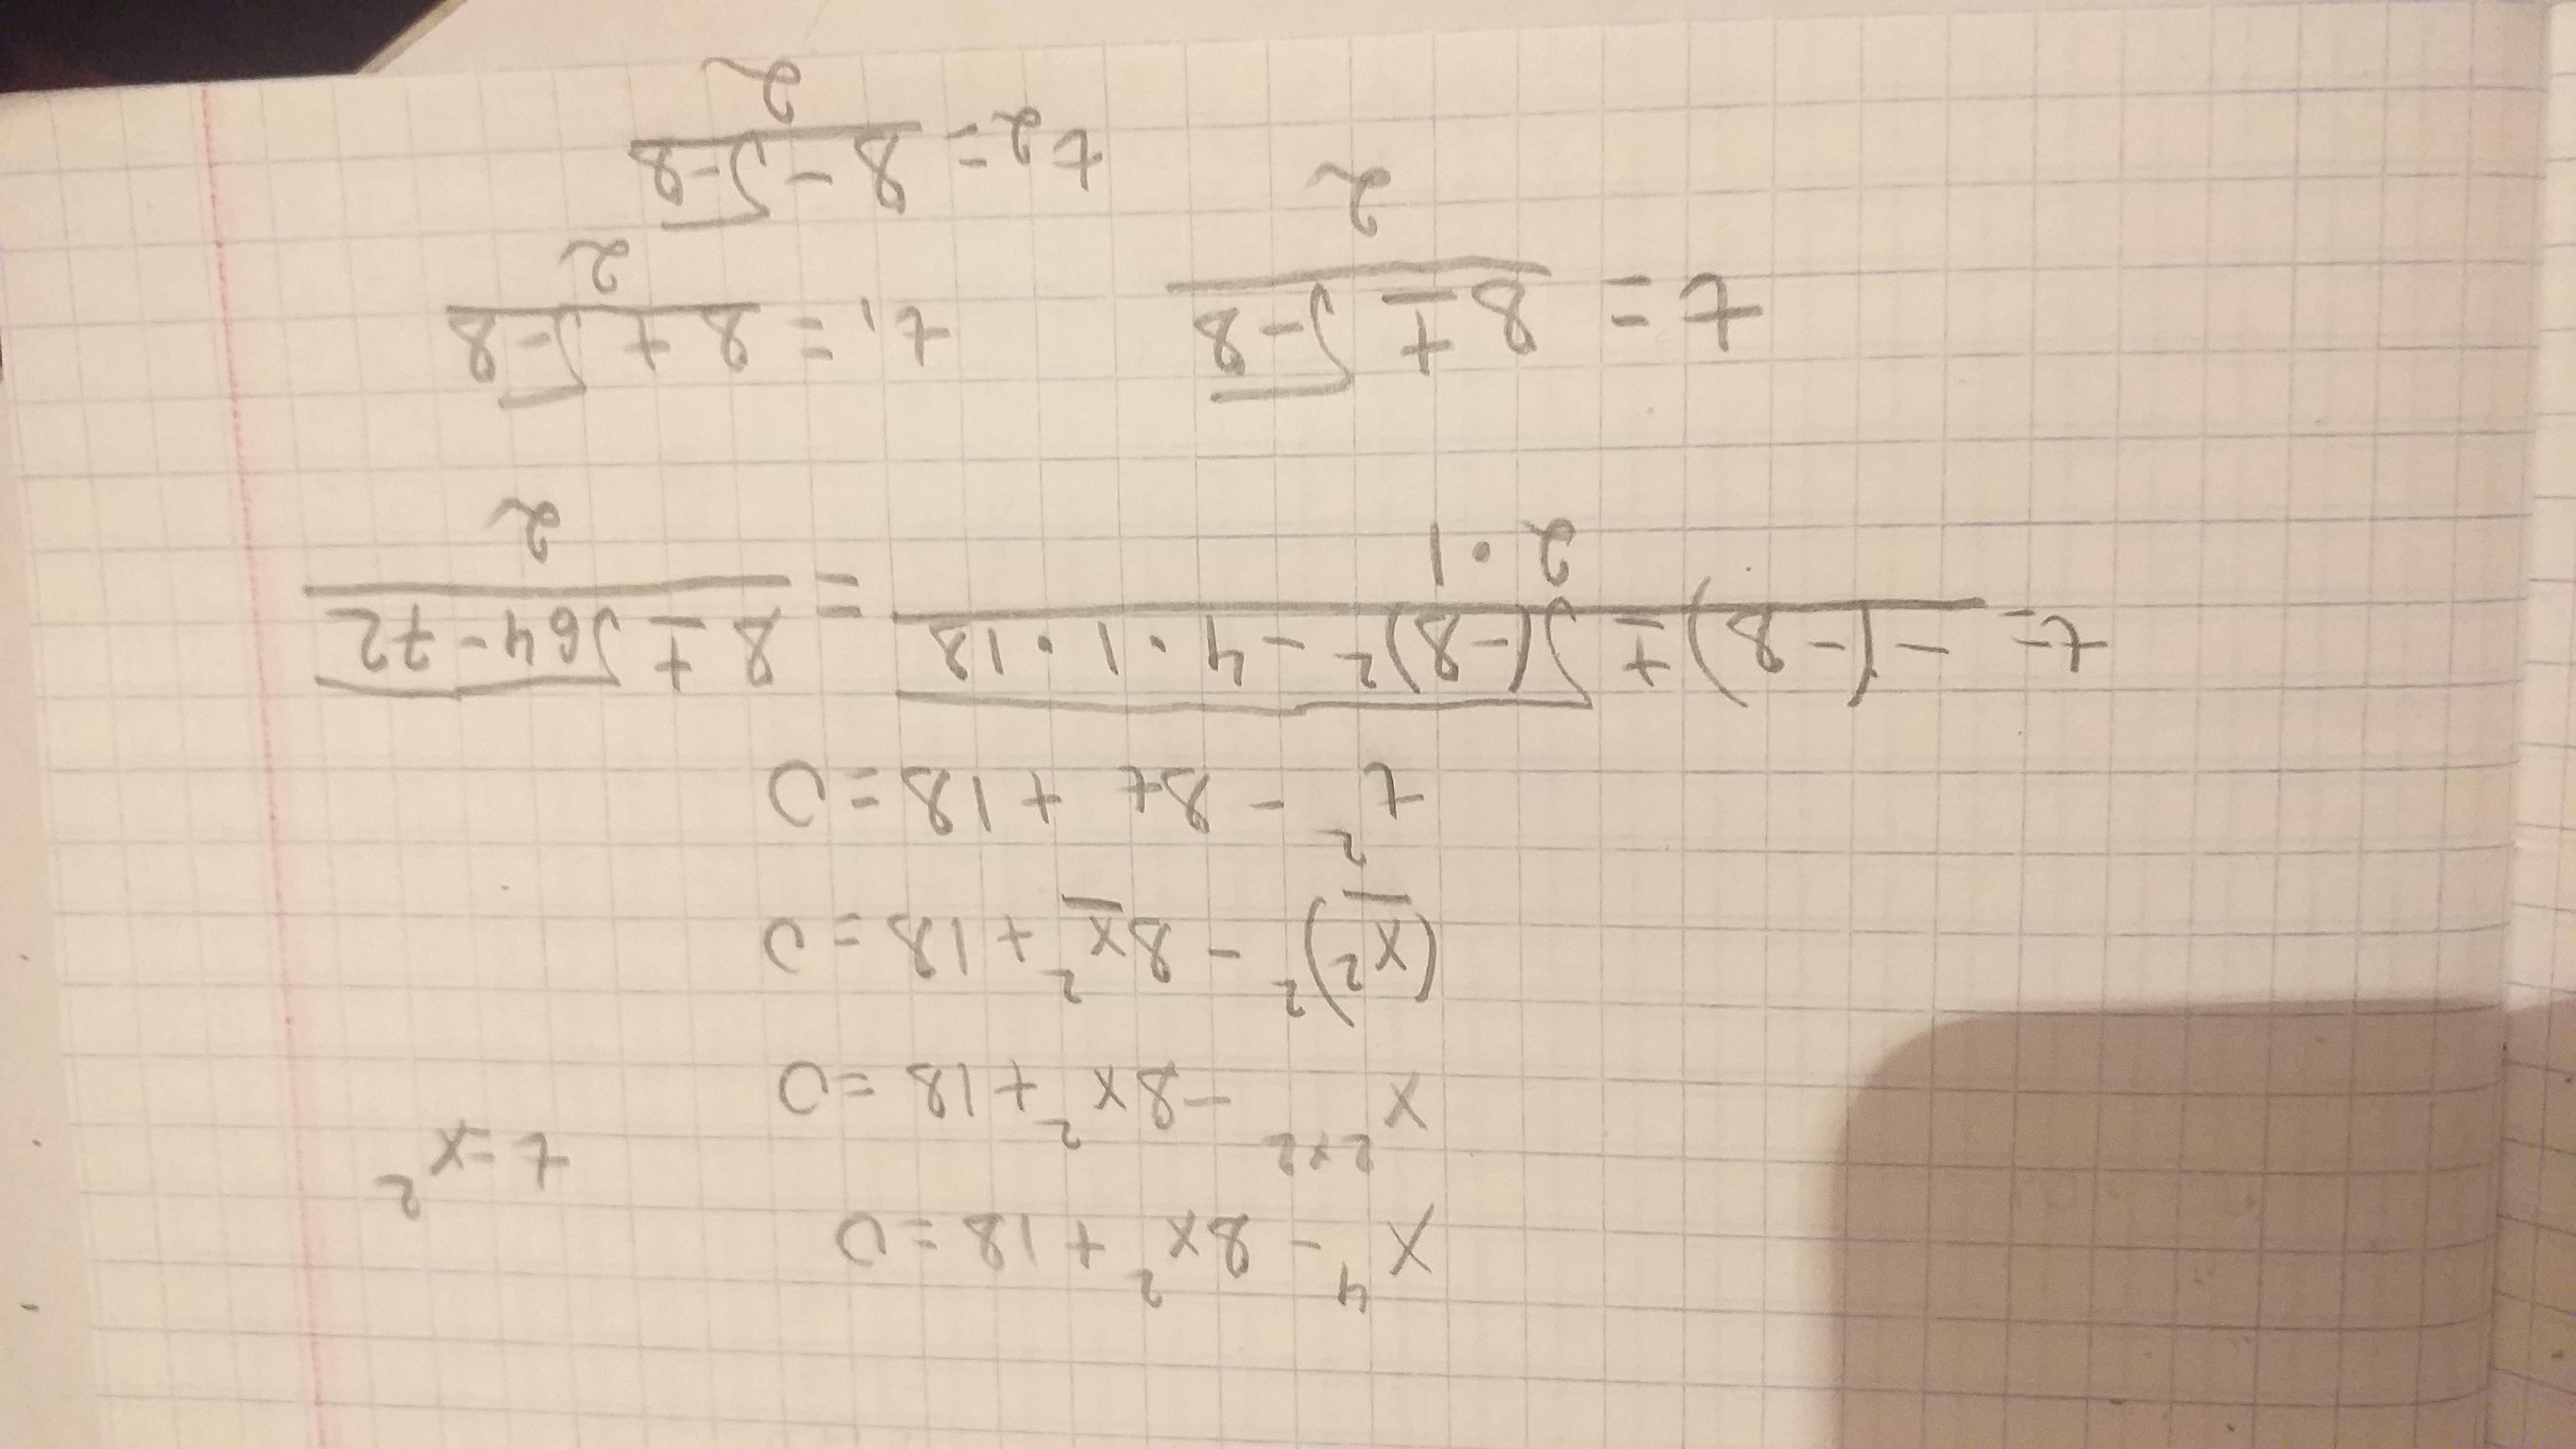 x⁴ - 8x² + 18 = 0
t = x²
x²*² - 8x² + 18 = 0
(x²)² - 8x² + 18 = 0
t² - 8t + 18 = 0
t = (-(-8) ± √((-8)² - 4 · 1 · 18)) / (2 · 1) = (8 ± √(64 - 72)) / 2
t = (8 ± √-8) / 2
t₁ = (8 + √-8) / 2
t₂ = (8 - √-8) / 2